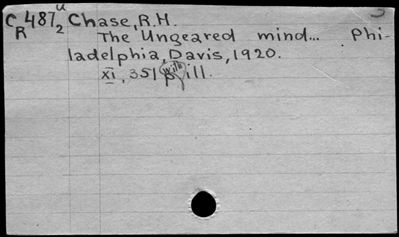 C R 487 u 2 Chase, R.H.
The Ungeared mind... Phi-
ladelphia, Davis, 1920.
XI, 351 p. with ill.